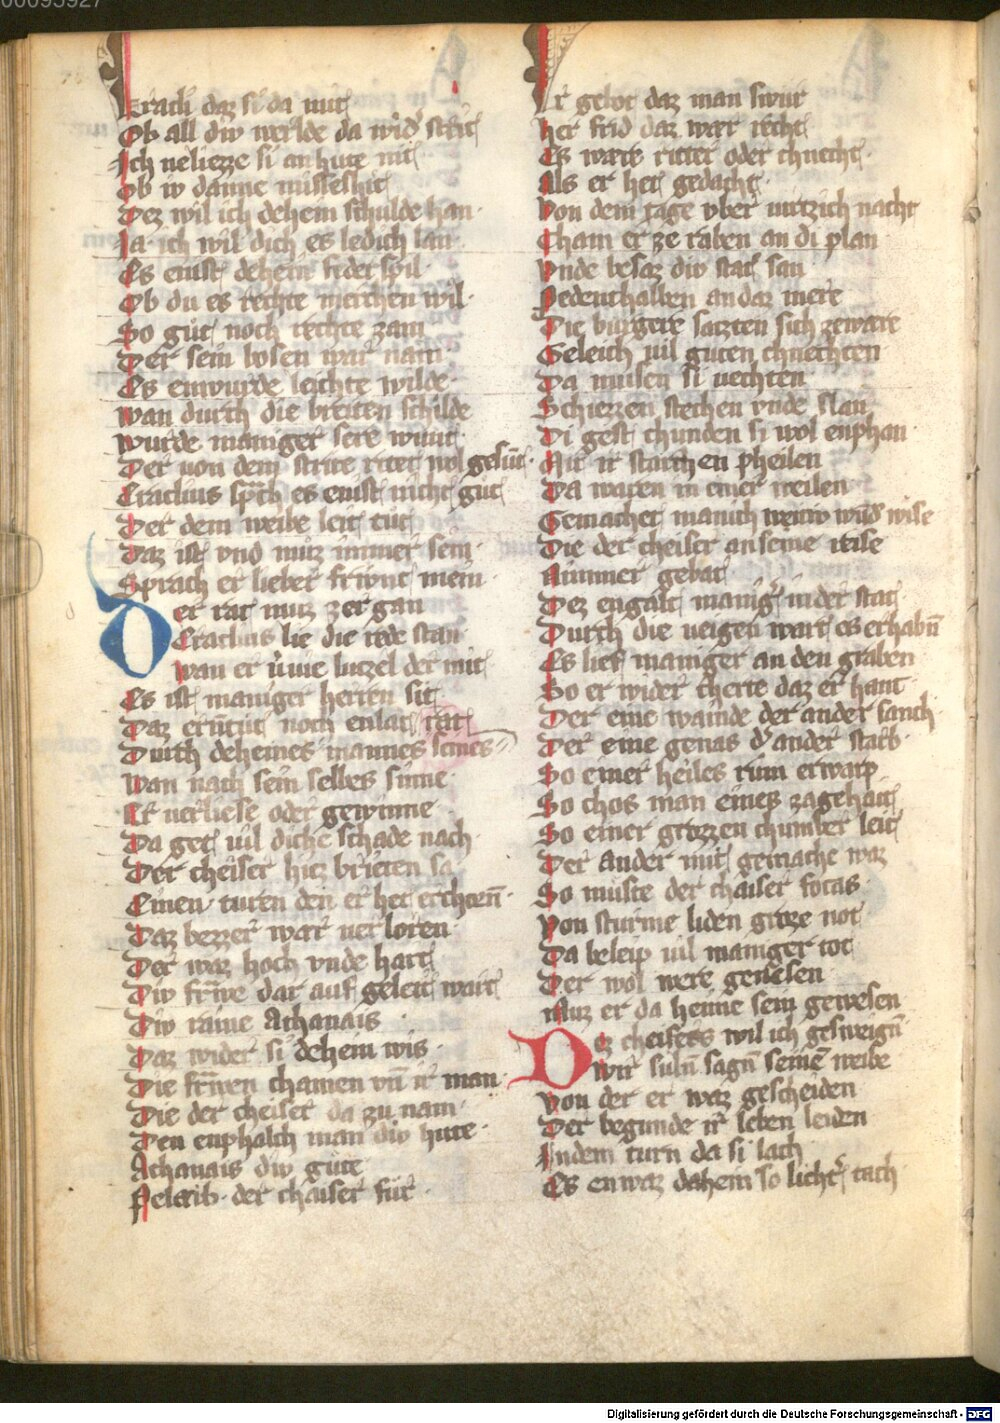 Eracli daz si da mit
Ob all div werlde da wid' strit
Ich neliezze si an hute nit
Ob iv danne misseshit
Dez wil ich dehein schulde han
Ia ich wil dich es ledich lan
Es enist dehein feder spil
Ob du es rechte merchen wil
So gut noch rechte zam
Der sein bosen war nam
Es enwurde leichte wilde
Wan durch die breiten schilde
Wurde maniger sere wunt
Der von dem strite ritet wol gesunt
Eraclius sprach es enist nicht gut
Der dem weibe leit tut
Daz ist vnd muz immer sein
Sprach er lieber friunt mein
Der rat muz zergan
Eraclius lie die rede stan
Wan er vie luzel der mit
Es ist maniger herren sit
Daz er tut noch enlat rat
Durch deheines mannes
Wan nach sein selbes sinne
Er verliese oder gewinne
Da get vil diche schade nach
Der cheiser hiez bricten sa
Einen turen den er het erchorn
Daz bezzer war verloren
Der waz hoch vnde hart
Div frawe dar auf geleit wart
Div raine Athanais
Daz wider si dehein wis
Die frawen chamen vn ir man
Die der cheiser da zu nam
Den enphalch man div hute
Athanais div gute
Selb der chaiser fur
Er gebot daz man swur
Her frid daz war recht
Es ware ritter oder chnecht
Als er het gedacht
Von dem tage vber virtzich nacht
Cham er ze raben an di plan
Vnde besaz div stat san
Bedenthalben an daz mere
Die burgere satzten sich zeware
Geleich vil guten chnechten
Da musen si vechten
Schiezzen stechen vnde slan
Di gest chunden si wol enphan
Mit ir starchen pheilen
Da waren in einer weilen
Gemachet manich weitw vnd wise
Die der cheiser an seine reise
Nimmer gebat
Dez engalt manig' in der stat
Durch die veigen wart es erhabn
Es lief maniger an den graben
So er wider cherte daz er hant
Der eine wainde der ander sanch
Der eine genas d' ander starb
So einer heiles rum erwarp
So chos man eines zagehait
So einer grozzen chumber leit
Der ander mit gemache waz
So muste der chaiser focas
Von sturme liden groze not
Da beleip vil maniger tot
Der wol were genesen
Muz er da heime sein gewesen
Dez cheisers wil ich gesweign
Wir suln sagn seine weibe
Von der er waz gescheiden
Der begunde ir leben leiden
In dem turn da si lach
Es enwaz dahein so lichter tach
Digitalisierung gefördert durch die Deutsche Forschungsgemeinschaft - DFG